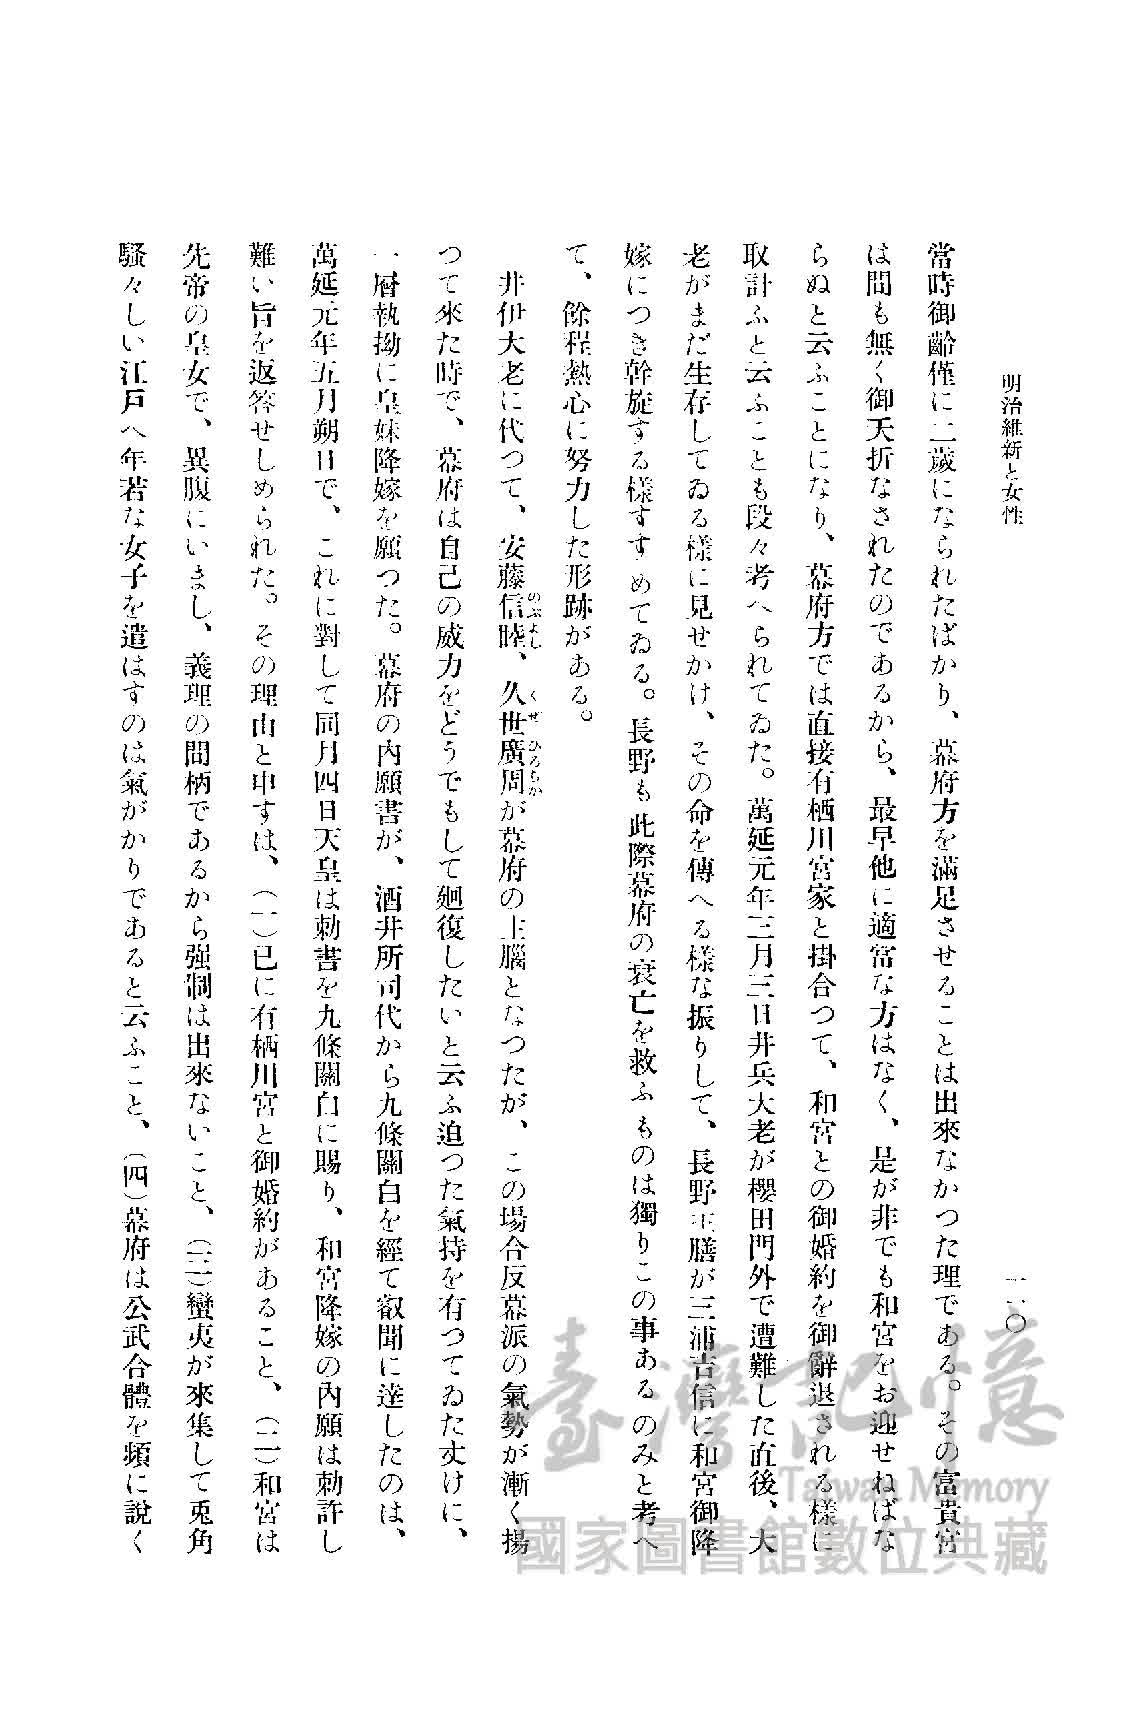 明治維新と女性
一一〇
當時御齡僅に二歲になられたばかり、幕府方を滿足させることは出來なかつた理である。その富貴宮
は間も無く御夭折なされたのであるから、最早他に適當な方はなく、是が非でも和宮をお迎せねばな
らぬと云ふことになり、幕府方では直接有栖川宮家と掛合つて、和宮との御婚約を御辭退される樣に
取計ふと云ふことも段々考へられてゐた。萬延元年三月三日井兵大老が櫻田門外で遭難した直後、大
老がまだ生存してゐる樣に見せかけ、その命を傳へる樣な振りして、長野主膳が三浦吉信に和宮御降
嫁につき幹旋する樣すすめてゐる。長野も此際幕府の衰亡を救ふものは獨りこの事あるのみと考へ
て、餘程熱心に努力した形跡がある。
井伊大老に代つて、安藤信睦、久世廣周が幕府の主腦となつたが、この場合反幕派の氣勢が漸く揚
のぶよし
くぜひろちか
つて來た時で、幕府は自己の威力をどうでもして廻復したいと云ふ迫つた氣持を有つてゐた丈けに、
一層執拗に皇妹降嫁を願つた。幕府の內願書が、酒井所司代から九條關白を經て叡聞に達したのは、
萬延元年五月朔日で、これに對して同月四日天皇は勅書を九條關白に賜り、和宮降嫁の內願は勅許し
難い旨を返答せしめられた。その理由と申すは、(一)已に有栖川宮と御婚約があること、(二)和宮は
先帝の皇女で、異腹にいまし、義理の間柄であるから强制は出來ないこと、(三)蠻夷が來集して兎角
騷々しい江戶へ年若な女子を遣はすのは氣がかりであると云ふこと、(四)幕府は公武合體を頻に說く
臺灣記憶
Taiwan Memory
國家圖書館數位典藏